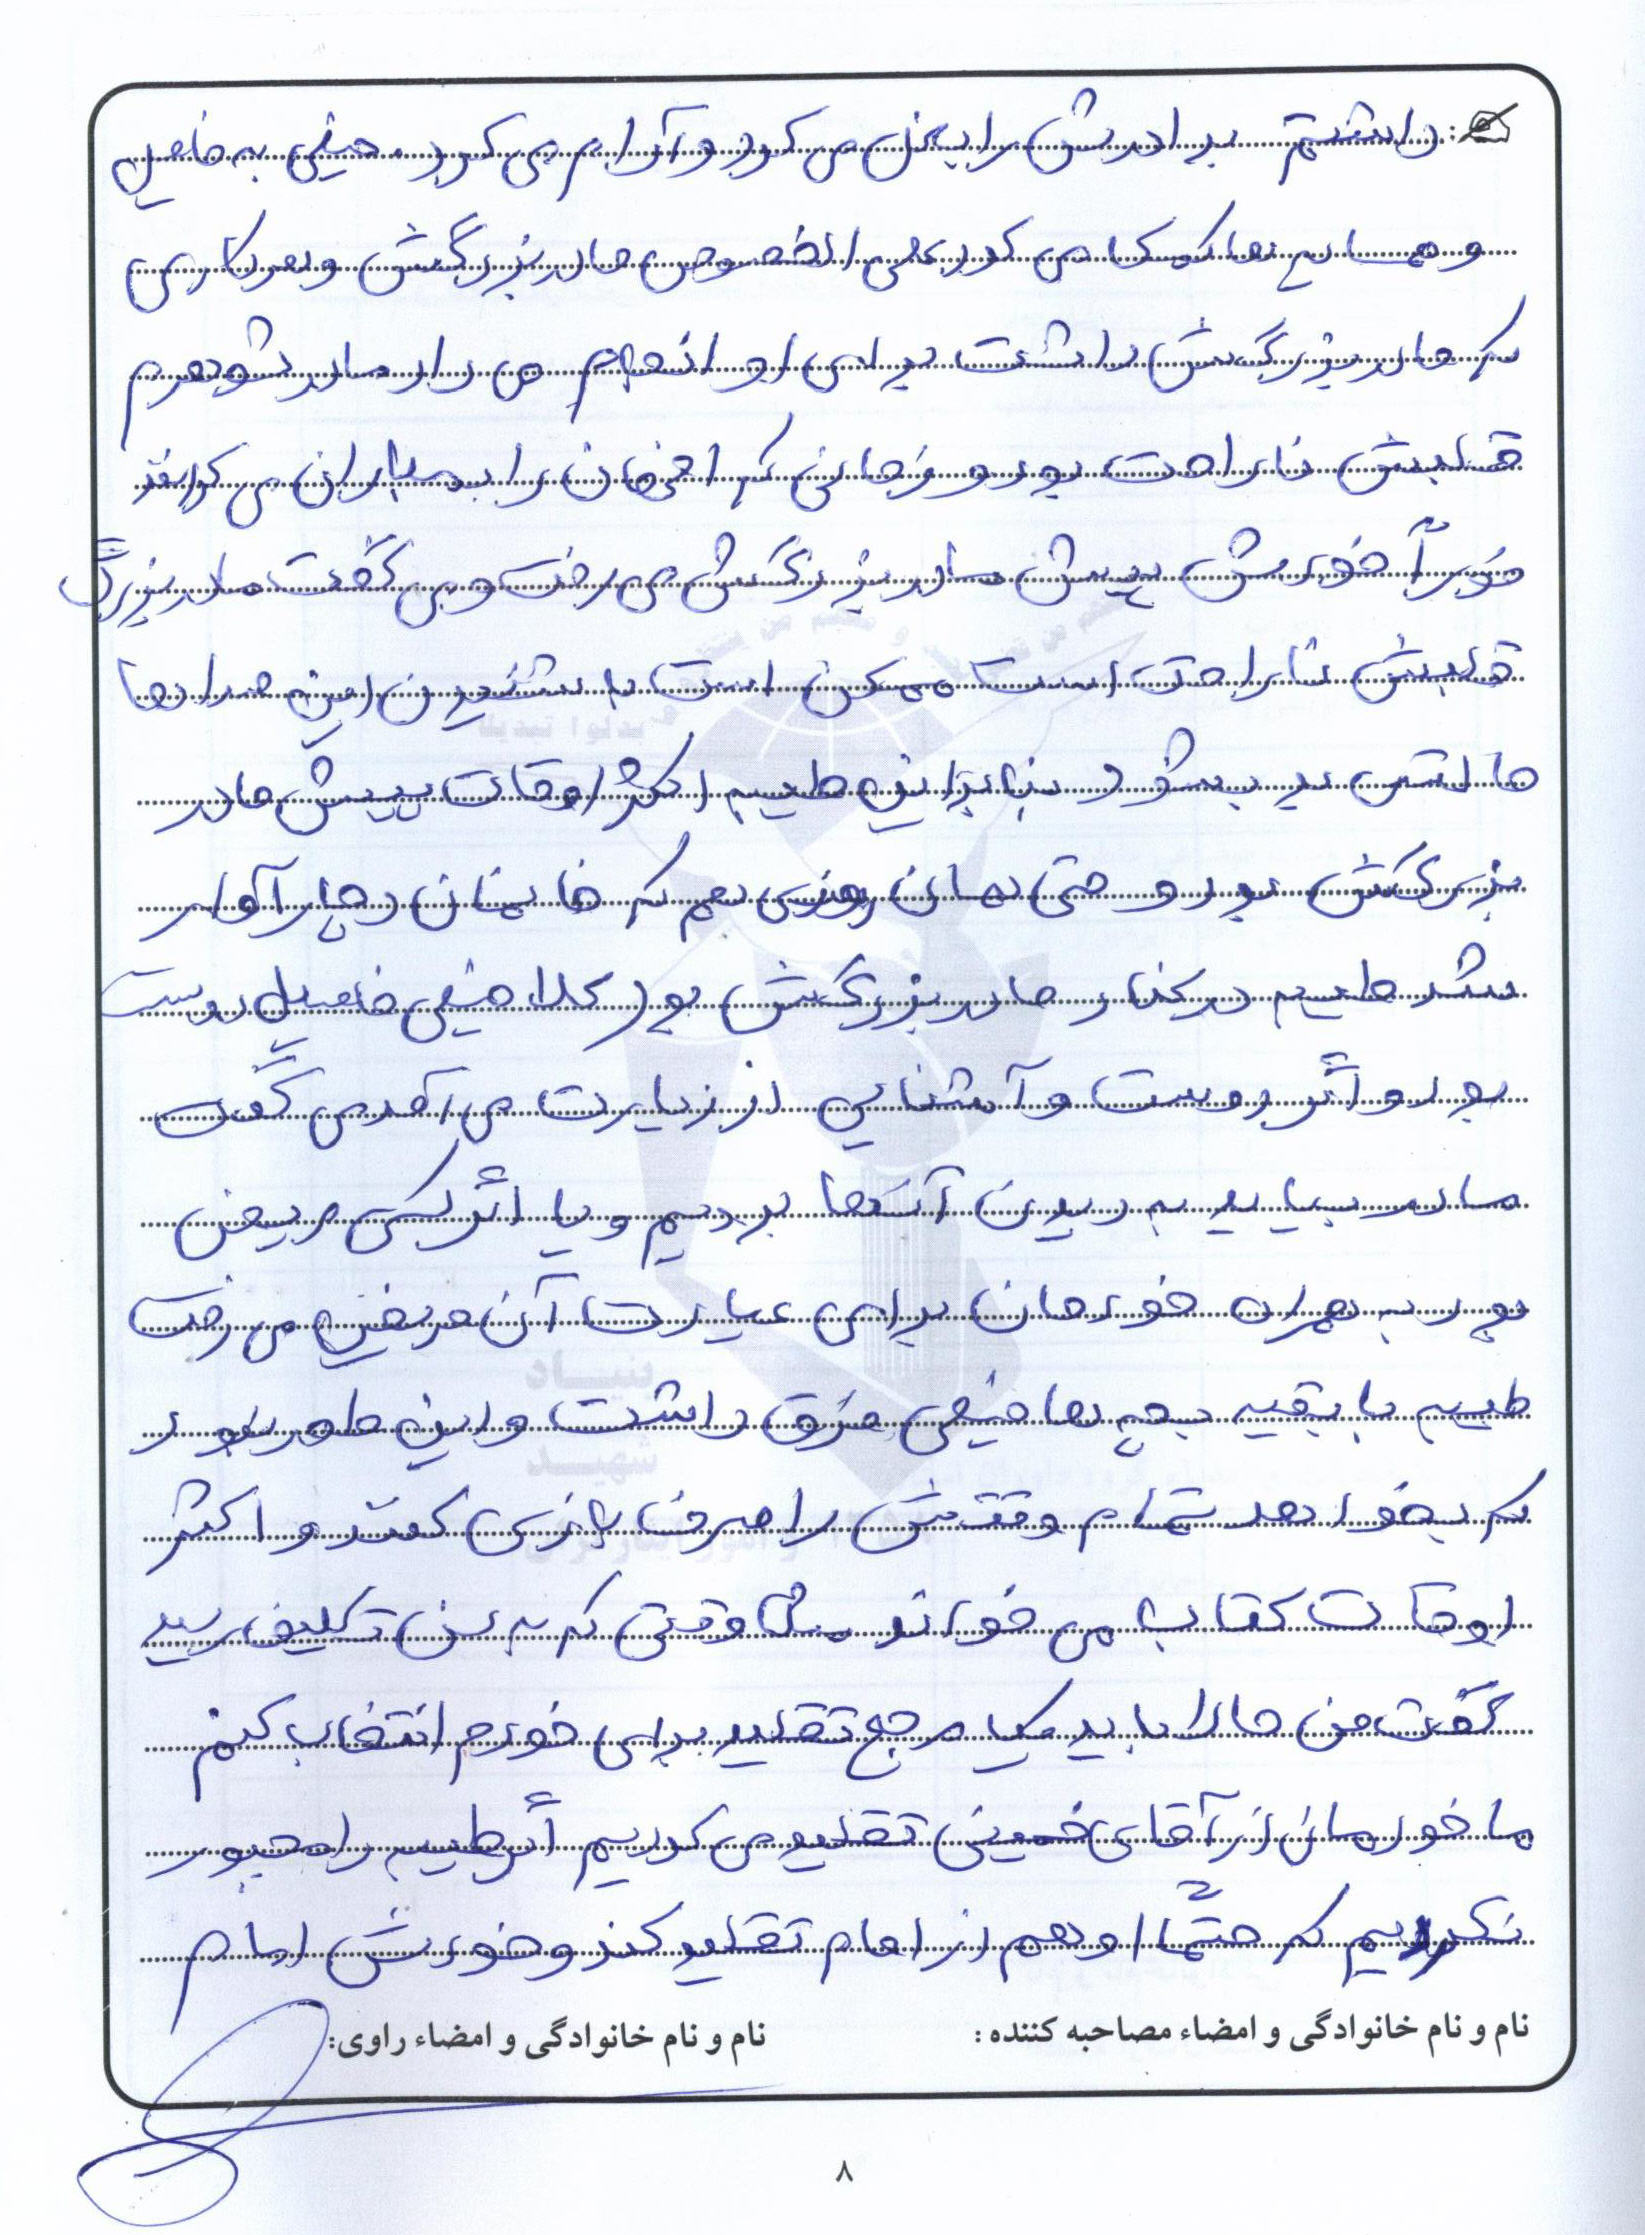 داشتم برادرش را بغل می کرد و آرام می کرد. خیلی به فامیل
و همسایه ها کمک می کرد علی الخصوص مادربزرگش و هر کاری
که مادربزرگش داشت برای او انجام می داد مادر شوهرم
قلبش ناراحت بود و زمانی که افغان را بمباران می کردند
فوراً خودش پیش مادربزرگش می رفت و می گفت مادربزرگ
قلبش ناراحت است ممکن است با شنیدن این صداها
حالتش بد بشود بنابراین طیبه اکثر اوقات پیش مادر
بزرگش بود و حتی همان روزی هم که خانمان دچار آوار
شد طیبه در کنار مادربزرگش بود کلا خیلی فامیل دوست
بود و اگر دوست و آشنایی از زیارت می آمد می گفت
مادر بیایید به دیدن آنها برویم و یا اگر کسی مریض
بود به همراه خودمان برای عیادت آن مریض می رفت
طیبه با بقیه بچه ها خیلی فرق داشت و این طور نبود
که بخواهد تمام وقتش را صرف بازی کند و اکثر
اوقات کتاب می خواند مثلا وقتی که به سن تکلیف رسید
گفت من حالا باید یک مرجع تقلید برای خودم انتخاب کنم
ما خودمان از آقای خمینی تقلید می کردیم اگر طیبه را مجبور
نکردیم که حتماً او هم از امام تقلید کند و خودش امام
نام و نام خانوادگی و امضاء مصاحبه کننده : نام و نام خانوادگی و امضاء راوی:
۸